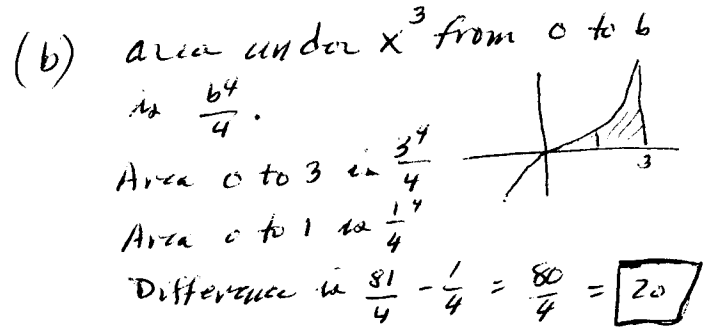 (b) area under x³ from 0 to b
is b⁴/4.
Area 0 to 3 is 3⁴/4
Area 0 to 1 is 1⁴/4
Difference is 81/4 - 1/4 = 80/4 = 20
1 3